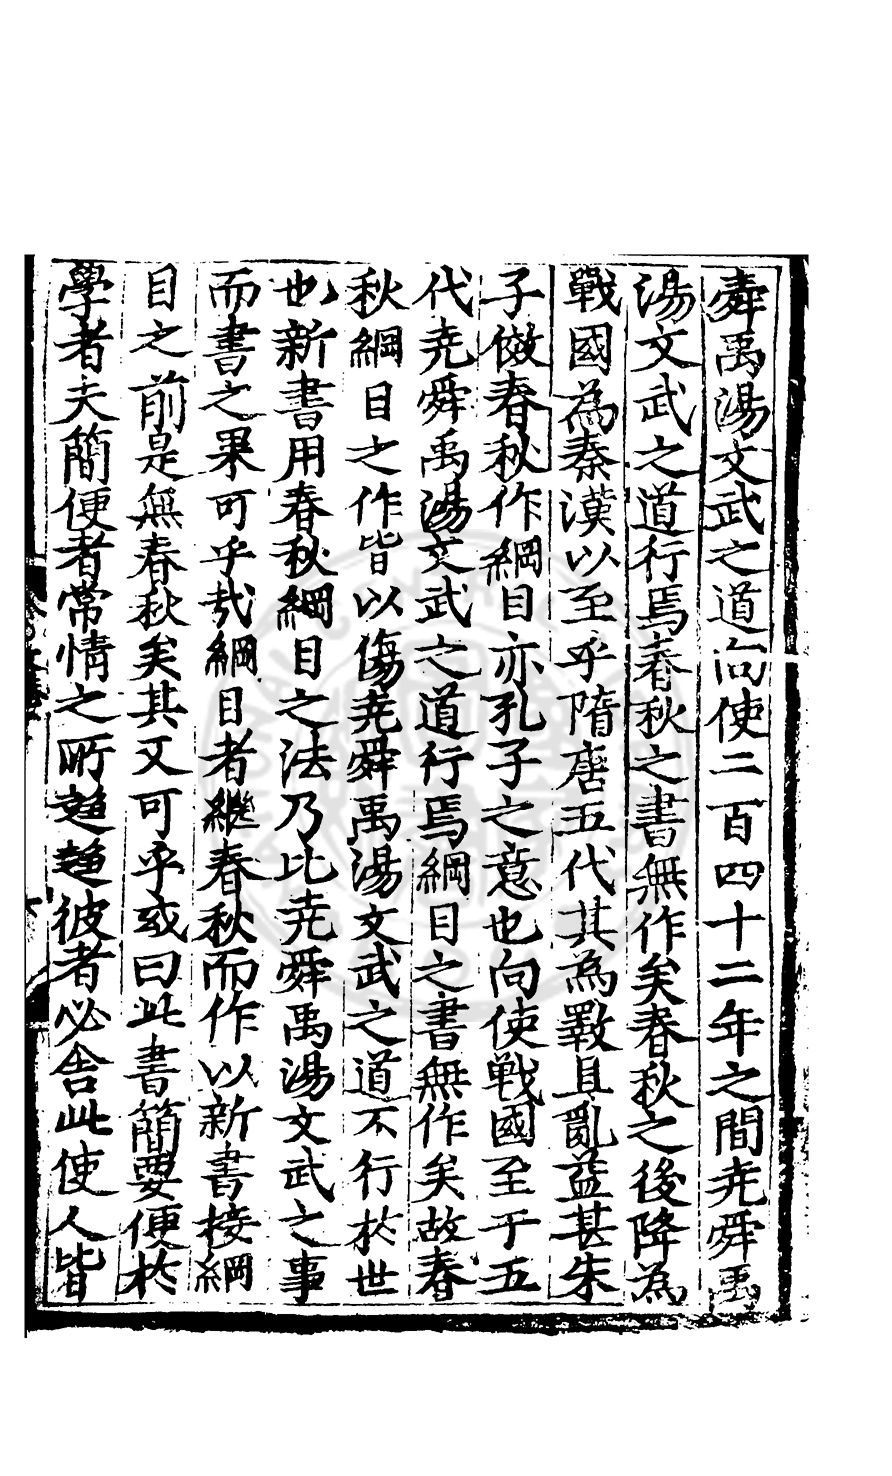 舜禹湯文武之道向使二百四十二年之間堯舜禹
湯文武之道行焉春秋之書無作矣春秋之後降為
戰國為秦漢以至乎隋唐五代其為斁且亂益甚朱
子倣春秋作綱目亦孔子之意也向使戰國至于五
代堯舜禹湯文武之道行焉綱目之書無作矣故春
秋綱目之作皆以傷堯舜禹湯文武之道不行於世
也新書用春秋綱目之法乃比堯舜禹湯文武之事
而書之果可乎哉綱目者繼春秋而作以新書接綱
目之前是無春秋矣其又可乎或曰此書簡要便於
學者夫簡便者常情之所趍趍彼者必舍此使人皆